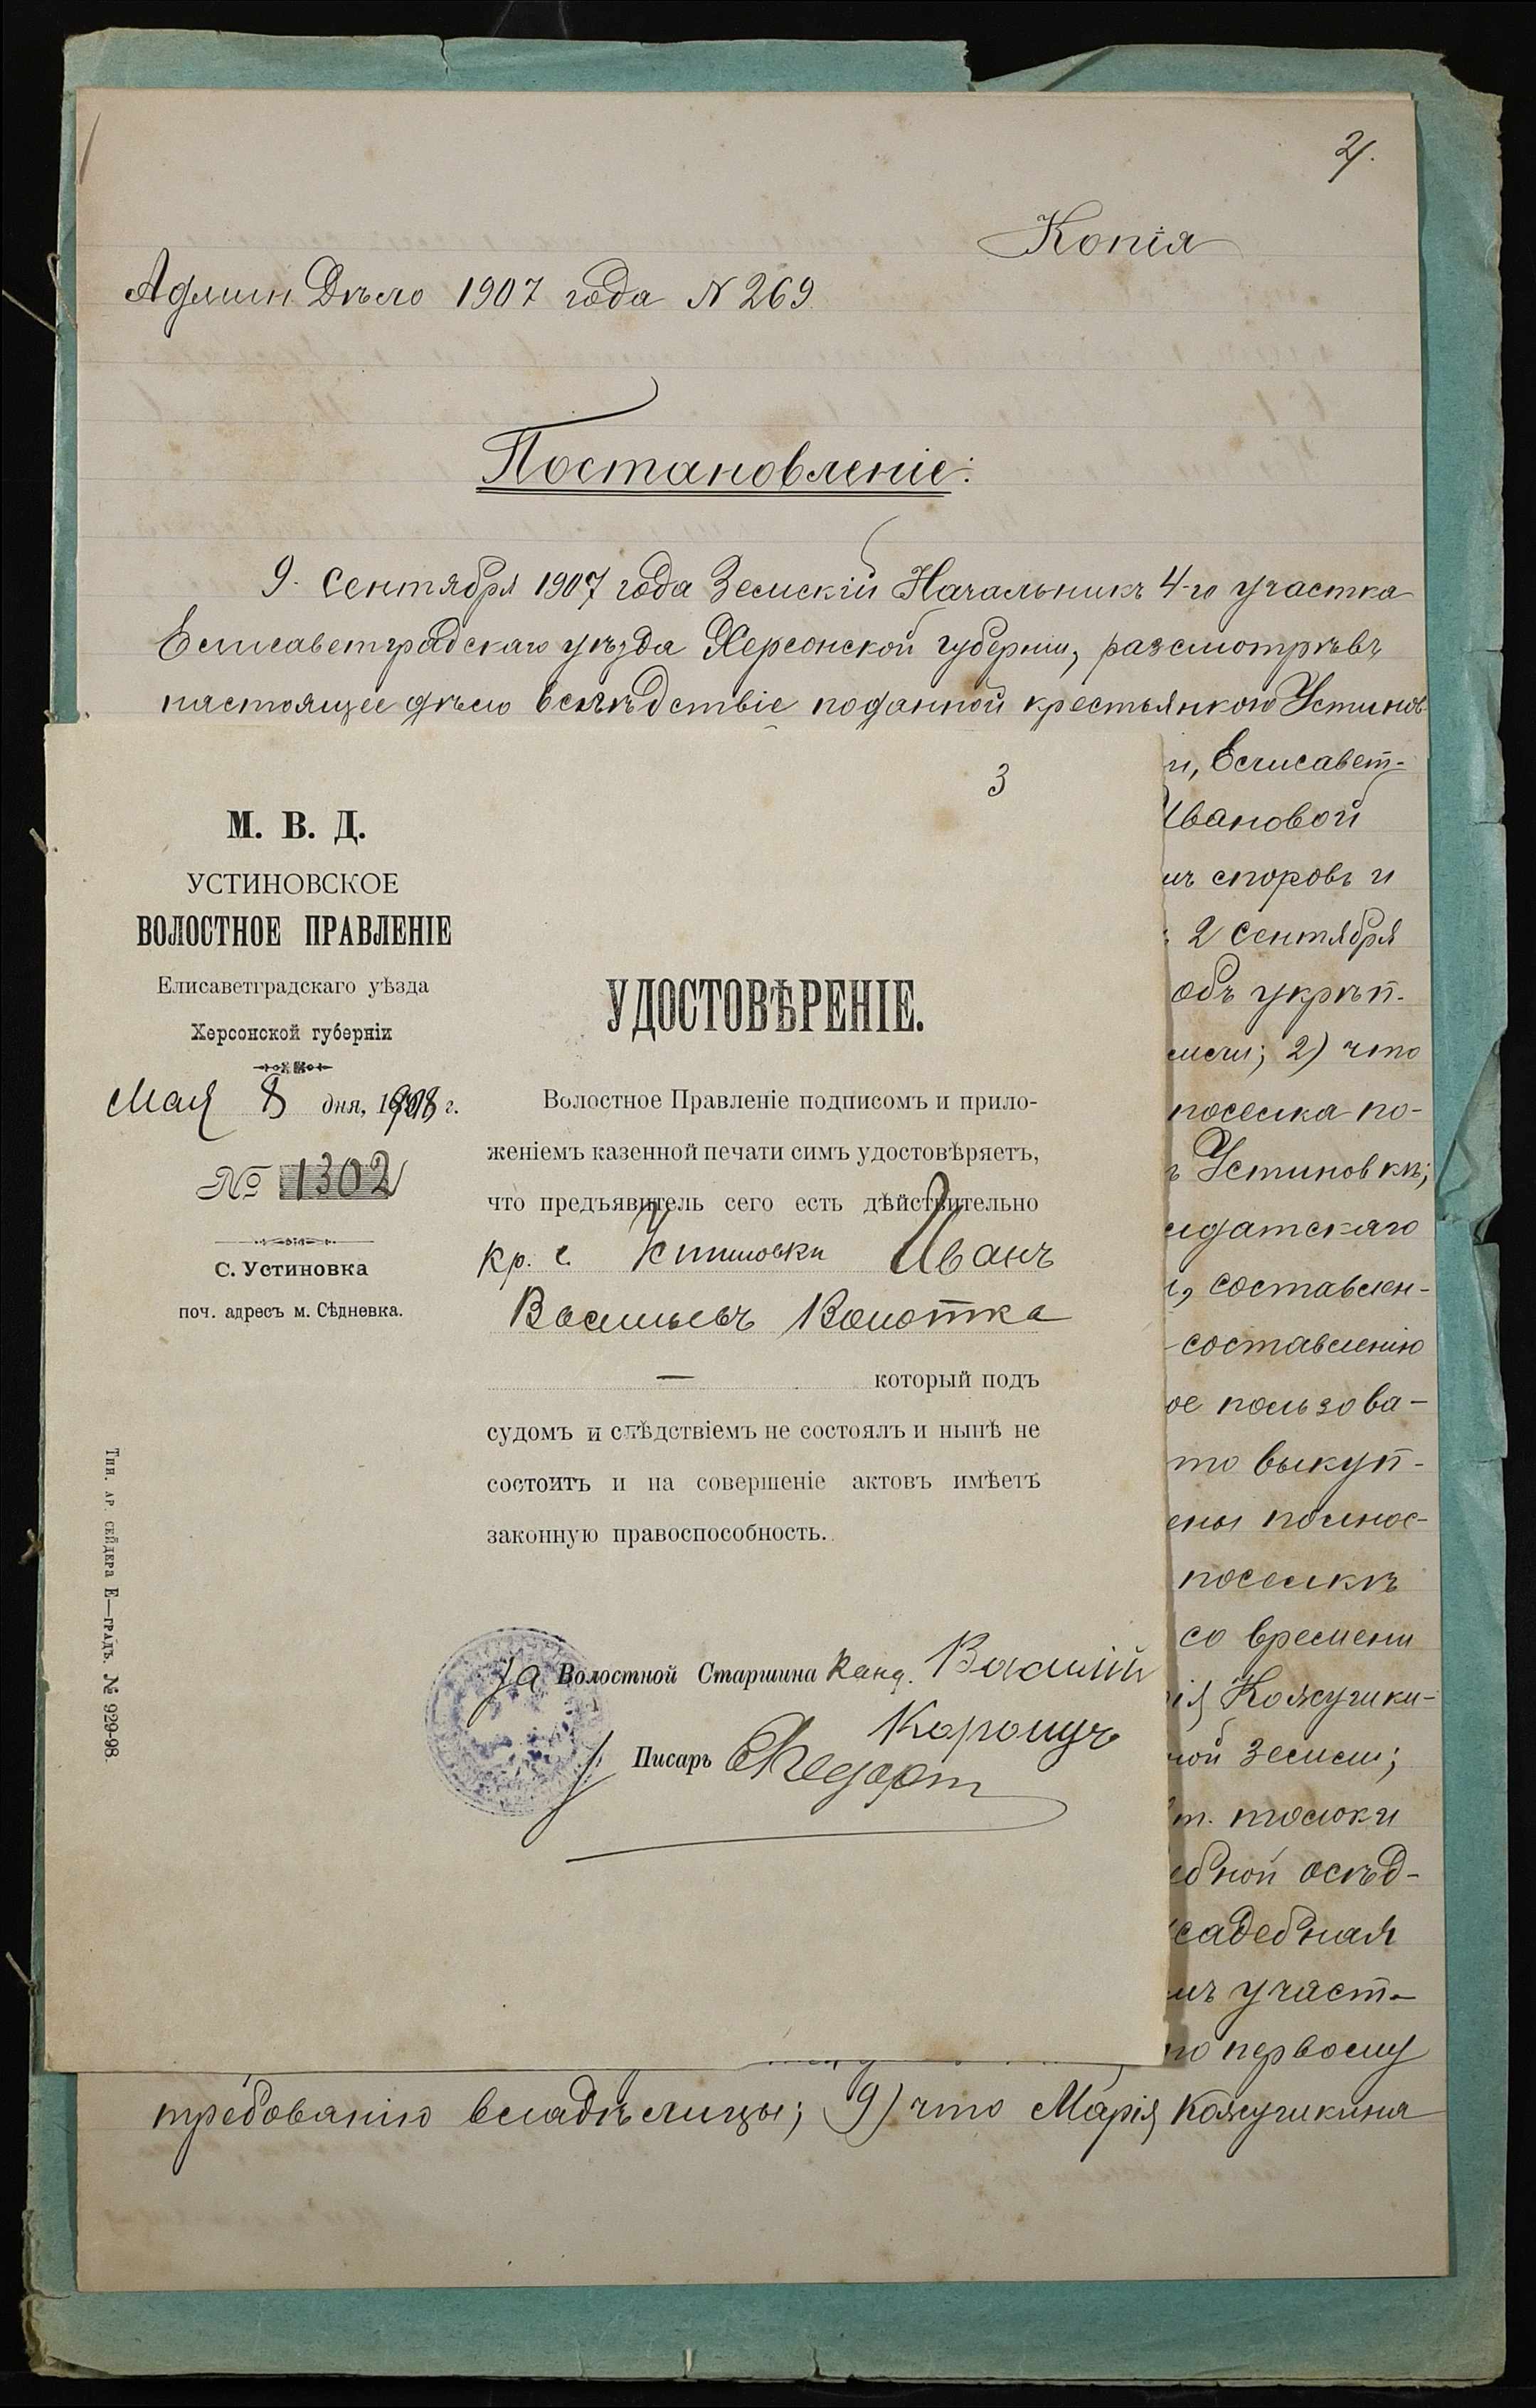 2.
Копія
Админ. Дѣло 1907 года № 269.
Постановленіе:
9. Сентября 1907 года Земскій Начальникъ 4-го участка
Елисаветградскаго уѣзда Херсонской губерніи, разсмотрѣвъ
настоящее дѣло вслѣдствіе поданной крестьянкою Устинов-
и, Елисавет-
Ивановой
мъ споровъ и
2 Сентября
объ укрѣп-
мли; 2) что
поселка по-
ъ Устиновкѣ;
лдатскаго
и, составлен-
составленію
ое пользова-
то выкуп-
ены полнос-
поселкѣ
со времени
рія Кожучики-
ной земли;
т. толоки
ебной осѣд-
садебная
мъ участ-
по первому
требованію владѣлицы; 9) что Марія Кожучикина
3
М. В. Д.
УСТИНОВСКОЕ
ВОЛОСТНОЕ ПРАВЛЕНІЕ
Елисаветградскаго уѣзда
Херсонской губерніи
Мая 8 дня, 1908 г.
№ 1302
С. Устиновка
поч. адресъ м. Сѣдневка.
Тип. ар. сейдера Е—градъ. № 929-98.
УДОСТОВѢРЕНІЕ.
Волостное Правленіе подписомъ и прило-
женіемъ казенной печати симъ удостовѣряетъ,
что предъявитель сего есть дѣйствительно
кр. с. Устиновки Иванъ
Васильевъ Волотка
— который подъ
судомъ и слѣдствіемъ не состоялъ и нынѣ не
состоитъ и на совершеніе актовъ имѣетъ
законную правоспособность.
За Волостной Старшина Канд. Василій
Писарь